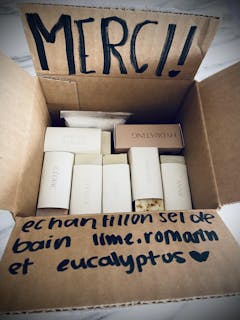 MERCI!!
HYDRATING
echantillon sel de
bain lime.romarin
et eucalyptus♥